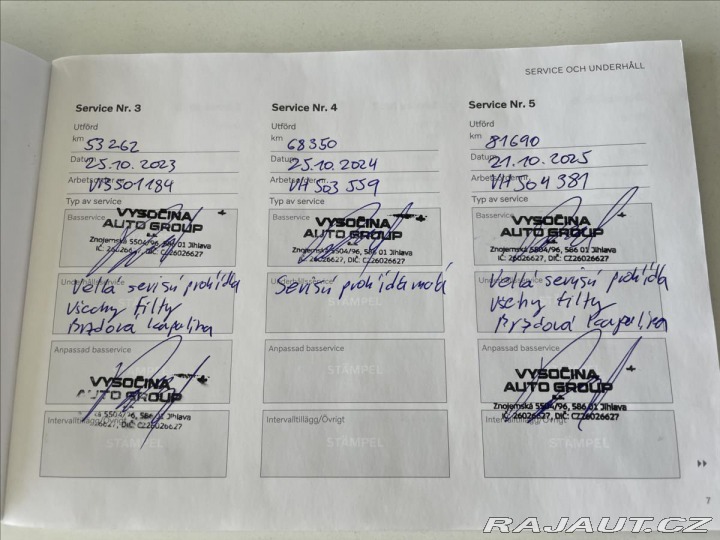 SERVICE OCH UNDERHÅLL
Service Nr. 3
Utförd
km 53262
Datum 25.10.2023
Arbetsorder nr. VH3501184
Typ av service
Basservice
VYSOČINA
AUTO GROUP
Znojemská 5504/96, 586 01 Jihlava
IČ: 26026627, DIČ: CZ26026627
Underhållsservice
Velká servisní prohlídka
všechny filtry
Brzdová kapalina
Anpassad basservice
VYSOČINA
AUTO GROUP
5504/96, 586 01 Jihlava
DIČ: CZ26026627
Intervalltillägg/Övrigt
STÄMPEL
Service Nr. 4
Utförd
km 68350
Datum 25.10.2024
Arbetsorder nr. VH 503 559
Typ av service
Basservice
VYSOČINA
AUTO GROUP
Znojemská 5504/96, 586 01 Jihlava
IČ: 26026627, DIČ: CZ26026627
Underhållsservice
Servisní prohlídka malá
STÄMPEL
Anpassad basservice
STÄMPEL
Intervalltillägg/Övrigt
STÄMPEL
Service Nr. 5
Utförd
km 81690
Datum 21.10.2025
Arbetsorder nr. VH 504 381
Typ av service
Basservice
VYSOČINA
AUTO GROUP
Znojemská 5504/96, 586 01 Jihlava
IČ: 26026627, DIČ: CZ26026627
Underhållsservice
Velká servisní prohlídka
všechny filtry
Brzdová kapalina
Anpassad basservice
VYSOČINA
AUTO GROUP
Znojemská 5504/96, 586 01 Jihlava
IČ: 26026627, DIČ: CZ26026627
Intervalltillägg/Övrigt
STÄMPEL
7
RAJAUT.CZ